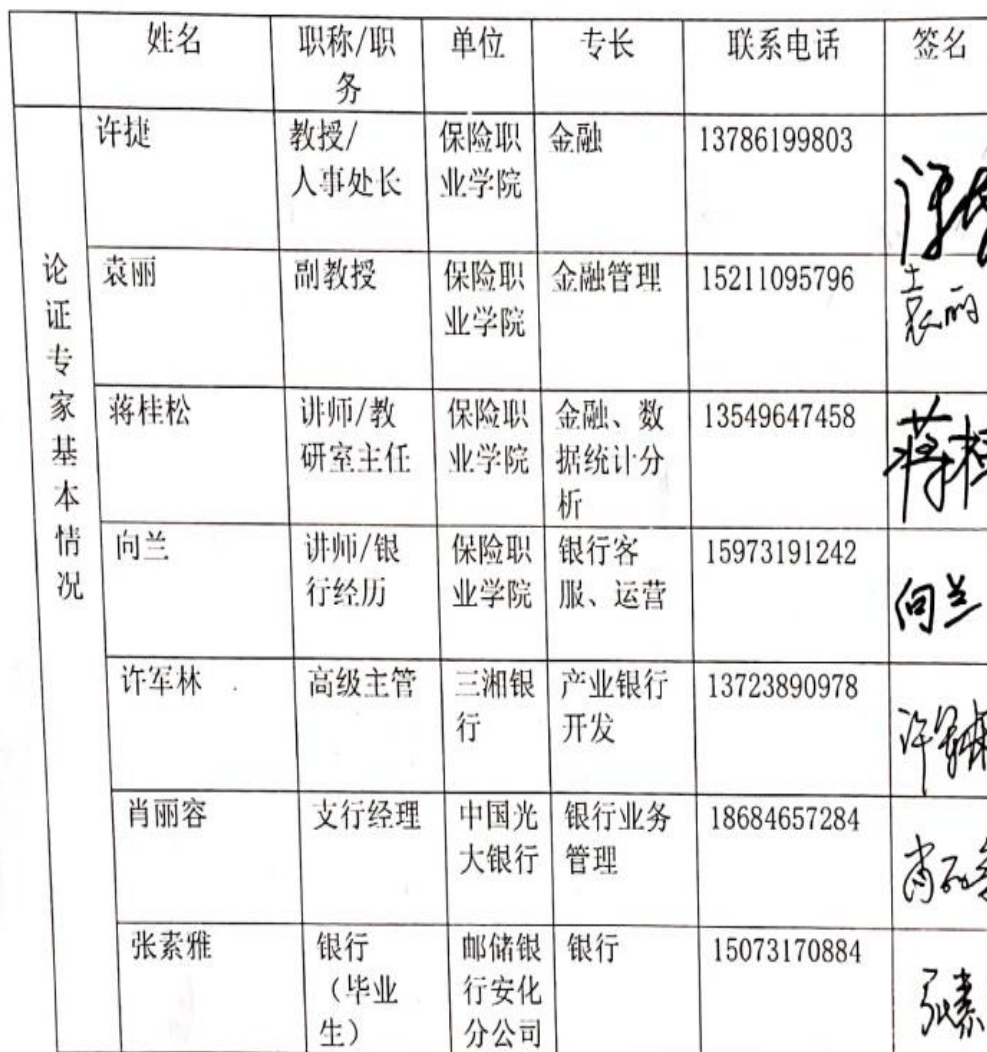 姓名 职称/职务 单位 专长 联系电话 签名
论证专家基本情况
许捷 教授/人事处长 保险职业学院 金融 13786199803
袁丽 副教授 保险职业学院 金融管理 15211095796 袁丽
蒋桂松 讲师/教研室主任 保险职业学院 金融、数据统计分析 13549647458 蒋桂
向兰 讲师/银行经历 保险职业学院 银行客服、运营 15973191242 向兰
许军林 高级主管 三湘银行 产业银行开发 13723890978 许军林
肖丽容 支行经理 中国光大银行 银行业务管理 18684657284 肖丽容
张素雅 银行（毕业生） 邮储银行安化分公司 银行 15073170884 张素